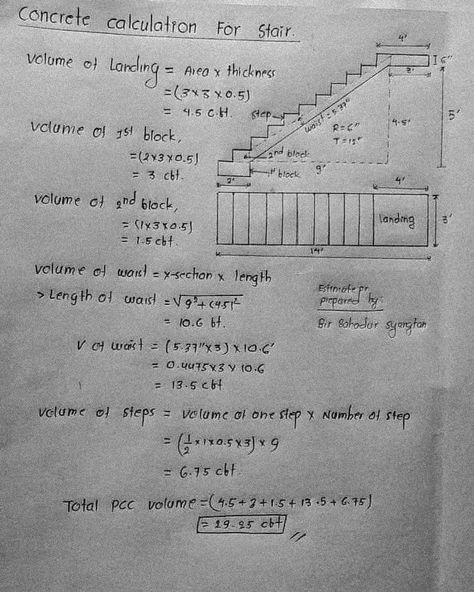 Concrete calculation For Stair.
Volume of Landing = Area x thickness
= (3x3x0.5)
= 4.5 cbt.
Volume of 1st block,
= (2x3x0.5)
= 3 cbt.
Volume of 2nd block,
= (1x3x0.5)
= 1.5 cbt.
4'
6"
3'
step
waist = 5.37"
R = 6"
T = 12"
4.5'
5'
2nd block
1st block
9'
2'
4'
landing
3'
14'
Volume of waist = x-section x length
> Length of waist = √9²+(4.5)²
= 10.6 bt.
V of waist = (5.37"x3) x 10.6'
= 0.4475 x 3 x 10.6
= 13.5 cbt
Estimate pr.
prepared by:
Bir Bahadur Syangtan
Volume of steps = Volume of one step x Number of step
= (1/2 x 1 x 0.5 x 3) x 9
= 6.75 cbt.
Total PCC volume = (4.5 + 3 + 1.5 + 13.5 + 6.75)
= 29.25 cbt //